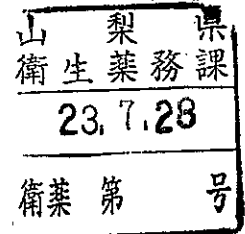 山梨県
衛生薬務課
23.7.28
衛薬 第 号